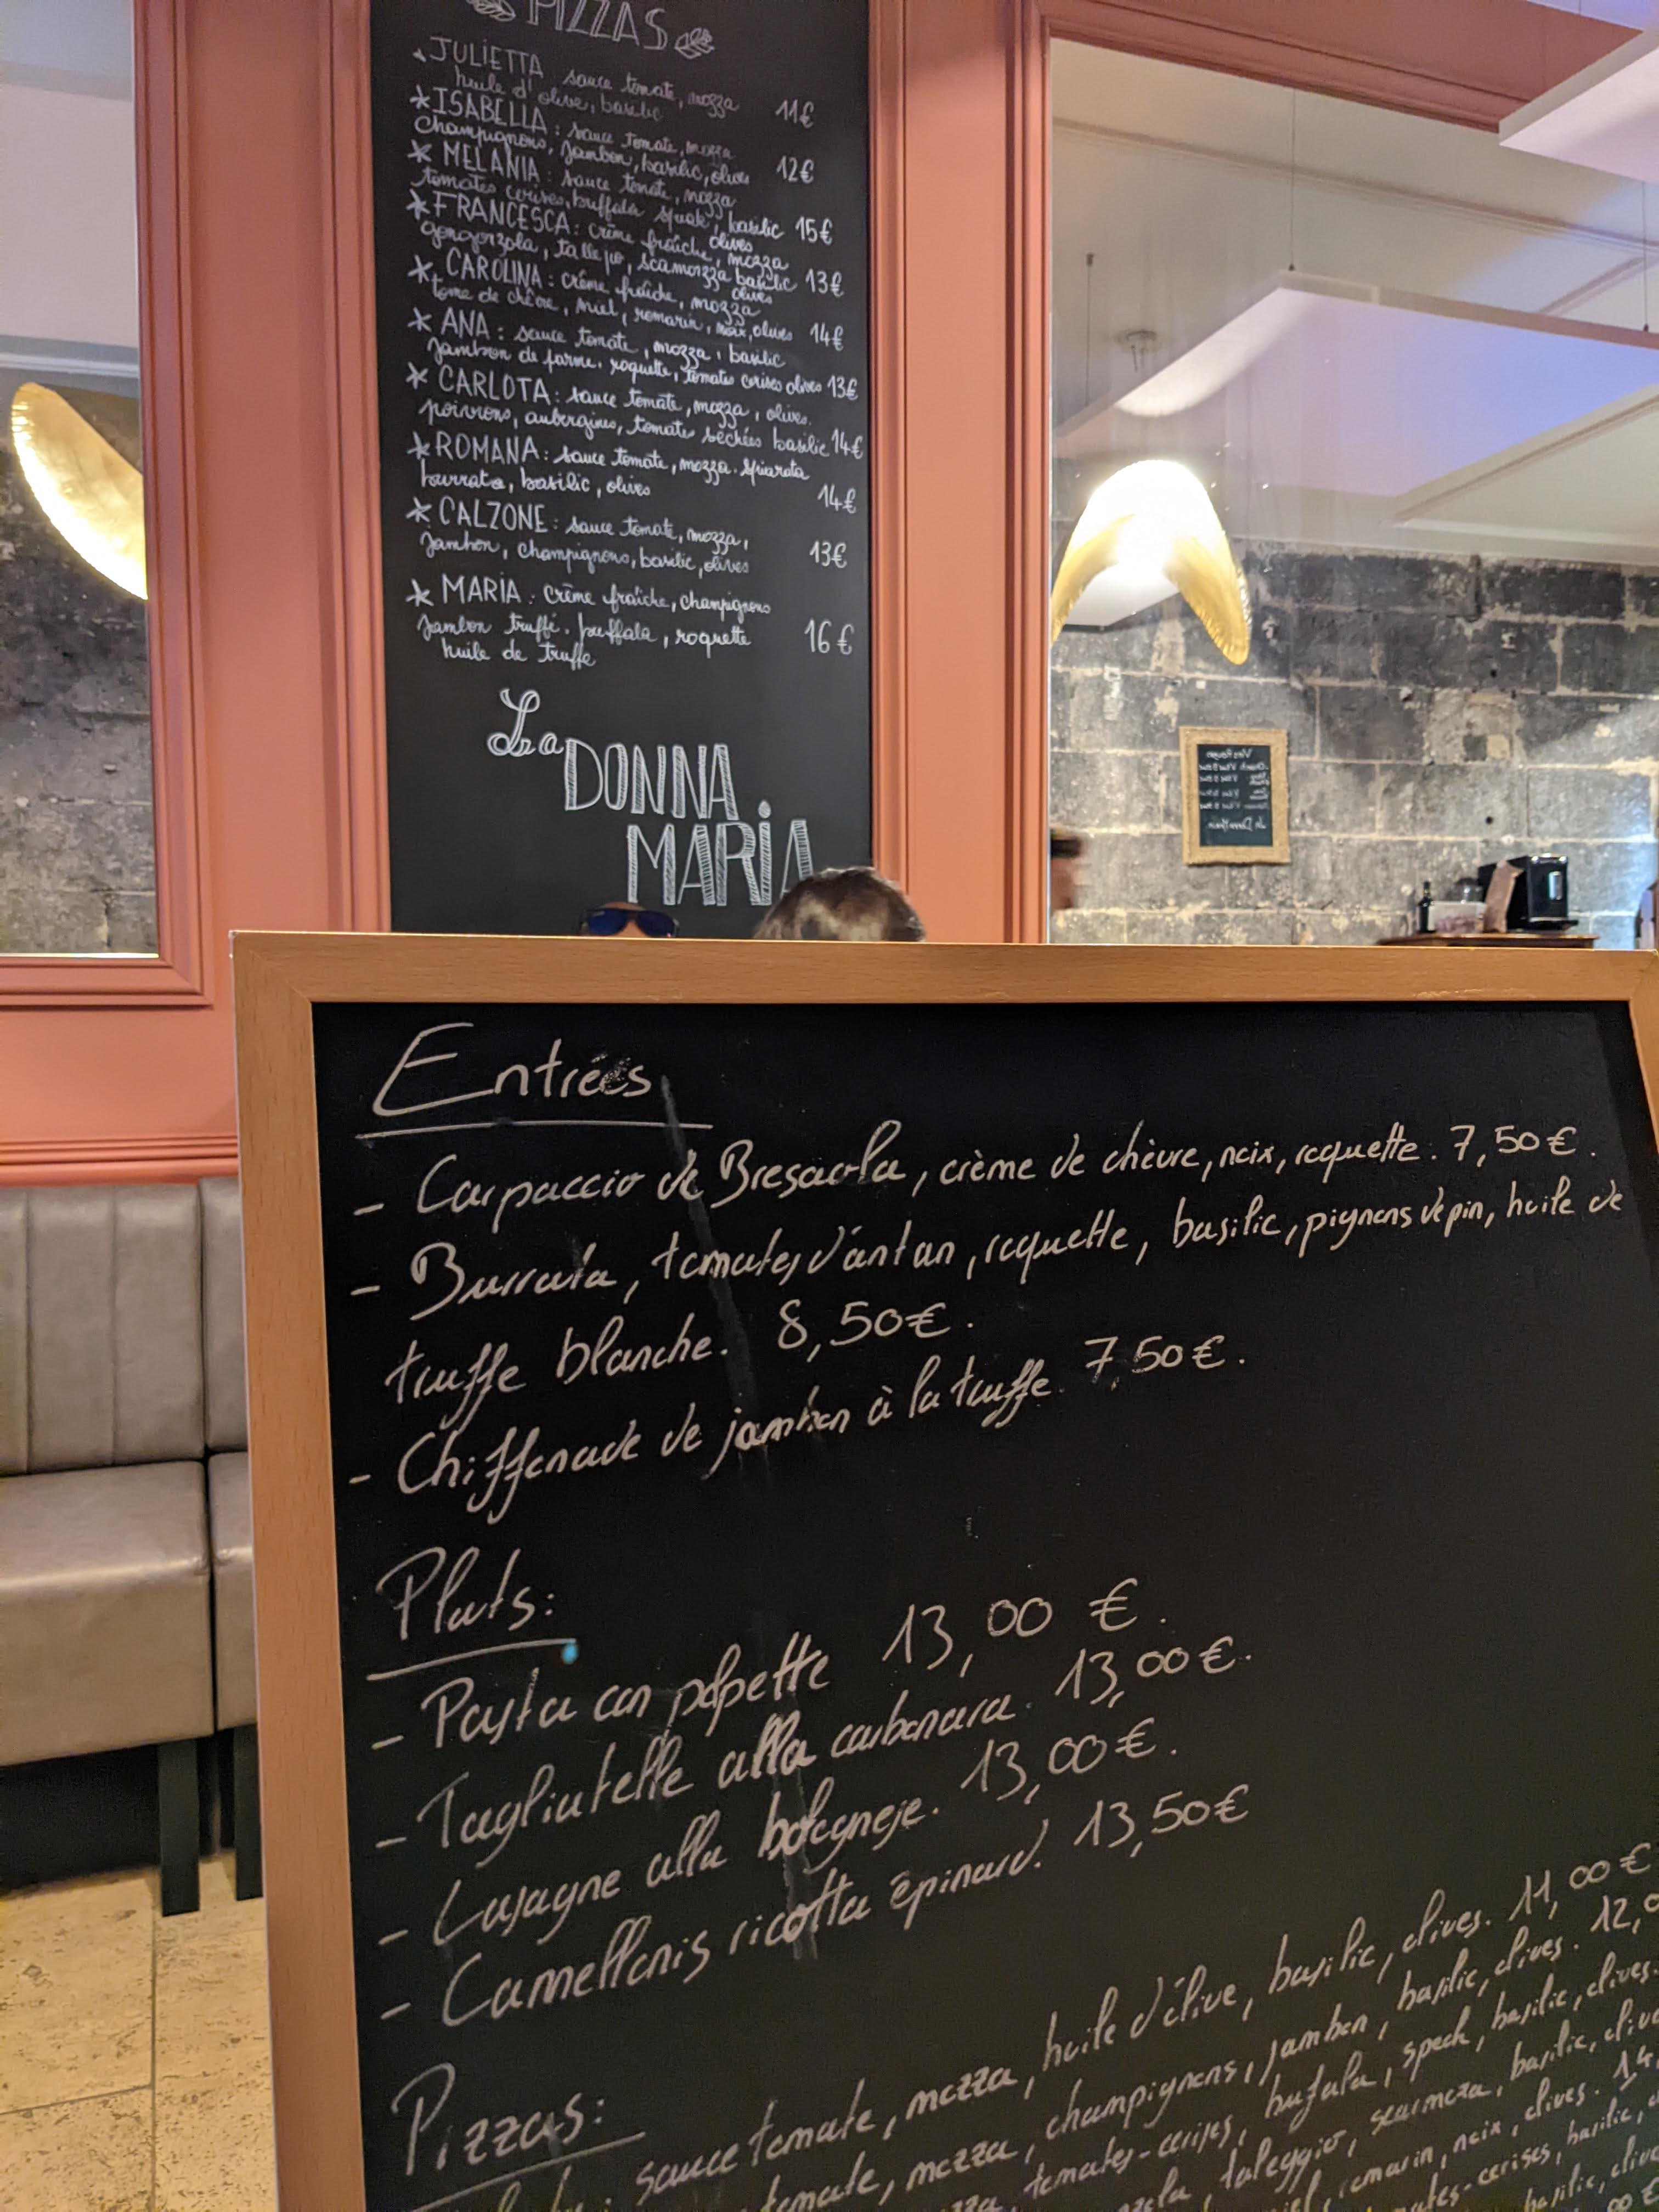 PIZZAS
JULIETTA sauce tomate, mozza
huile d'olive, basilic 11€
* ISABELLA : sauce tomate, mozza
Champignons, jambon, basilic, olives 12€
* MELANIA : sauce tomate, mozza
tomates cerises, buffala speak, basilic 15€
olives
* FRANCESCA : crème fraîche, mozza
gongorzola, tallejo, scamorzza basilic 13€
olives
* CAROLINA : crème fraîche, mozza
tome de chèvre, miel, romarin, noix, olives 14€
* ANA : sauce tomate, mozza, basilic
Jambon de parme, roquette, tomates cerises olives 13€
* CARLOTA : sauce tomate, mozza, olives.
poivrons, aubergines, tomates sechées basilic 14€
* ROMANA : sauce tomate, mozza. spianata
burrata, basilic, olives 14€
* CALZONE : sauce tomate, mozza,
Jambon, champignons, basilic, olives 13€
* MARIA : crème fraîche, champignons
Jambon truffé. buffala, roquette 16 €
huile de truffe
La
DONNA
MARIA
Entrées
- Carpaccio de Bresaola, crème de chèvre, noix, roquette. 7,50€.
- Burrata, tomates d'antan, roquette, basilic, pignons de pin, huile de
truffe blanche. 8,50€.
- Chiffonade de jambon à la truffe. 7,50€.
Plats:
- Pasta con polpette 13,00 €.
- Tagliatelle alla carbonara. 13,00€.
- Lasagne alla bolognese. 13,00€.
- Camellonis ricotta épinard. 13,50€
Pizzas:
sauce tomate, mozza, huile d'olive, basilic, olives. 11,00€
tomate, mozza, champignons, jambon, basilic, olives. 12,0
tomates-cerises, bufala, speck, basilic, olives.
taleggio, scarmoza, basilic, olive
romarin, noix, olives. 14,
tomates-cerises, basilic,
basilic, olive